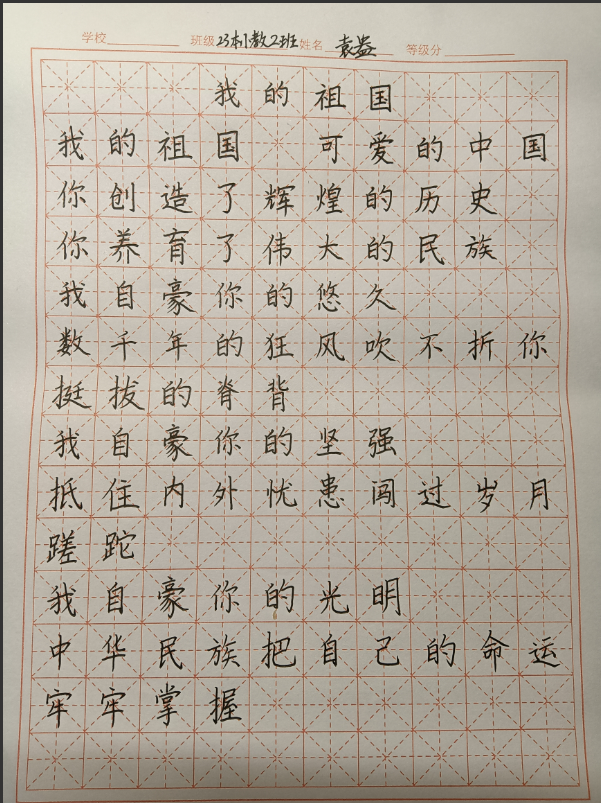 学校 班级 23本小教2班 姓名 袁 等级分
我的祖国
我的祖国 可爱的中国
你创造了辉煌的历史
你养育了伟大的民族
我自豪你的悠久
数千年的狂风吹不折你
挺拔的脊背
我自豪你的坚强
抵住内外忧患闯过岁月
蹉跎
我自豪你的光明
中华民族把自己的命运
牢牢掌握